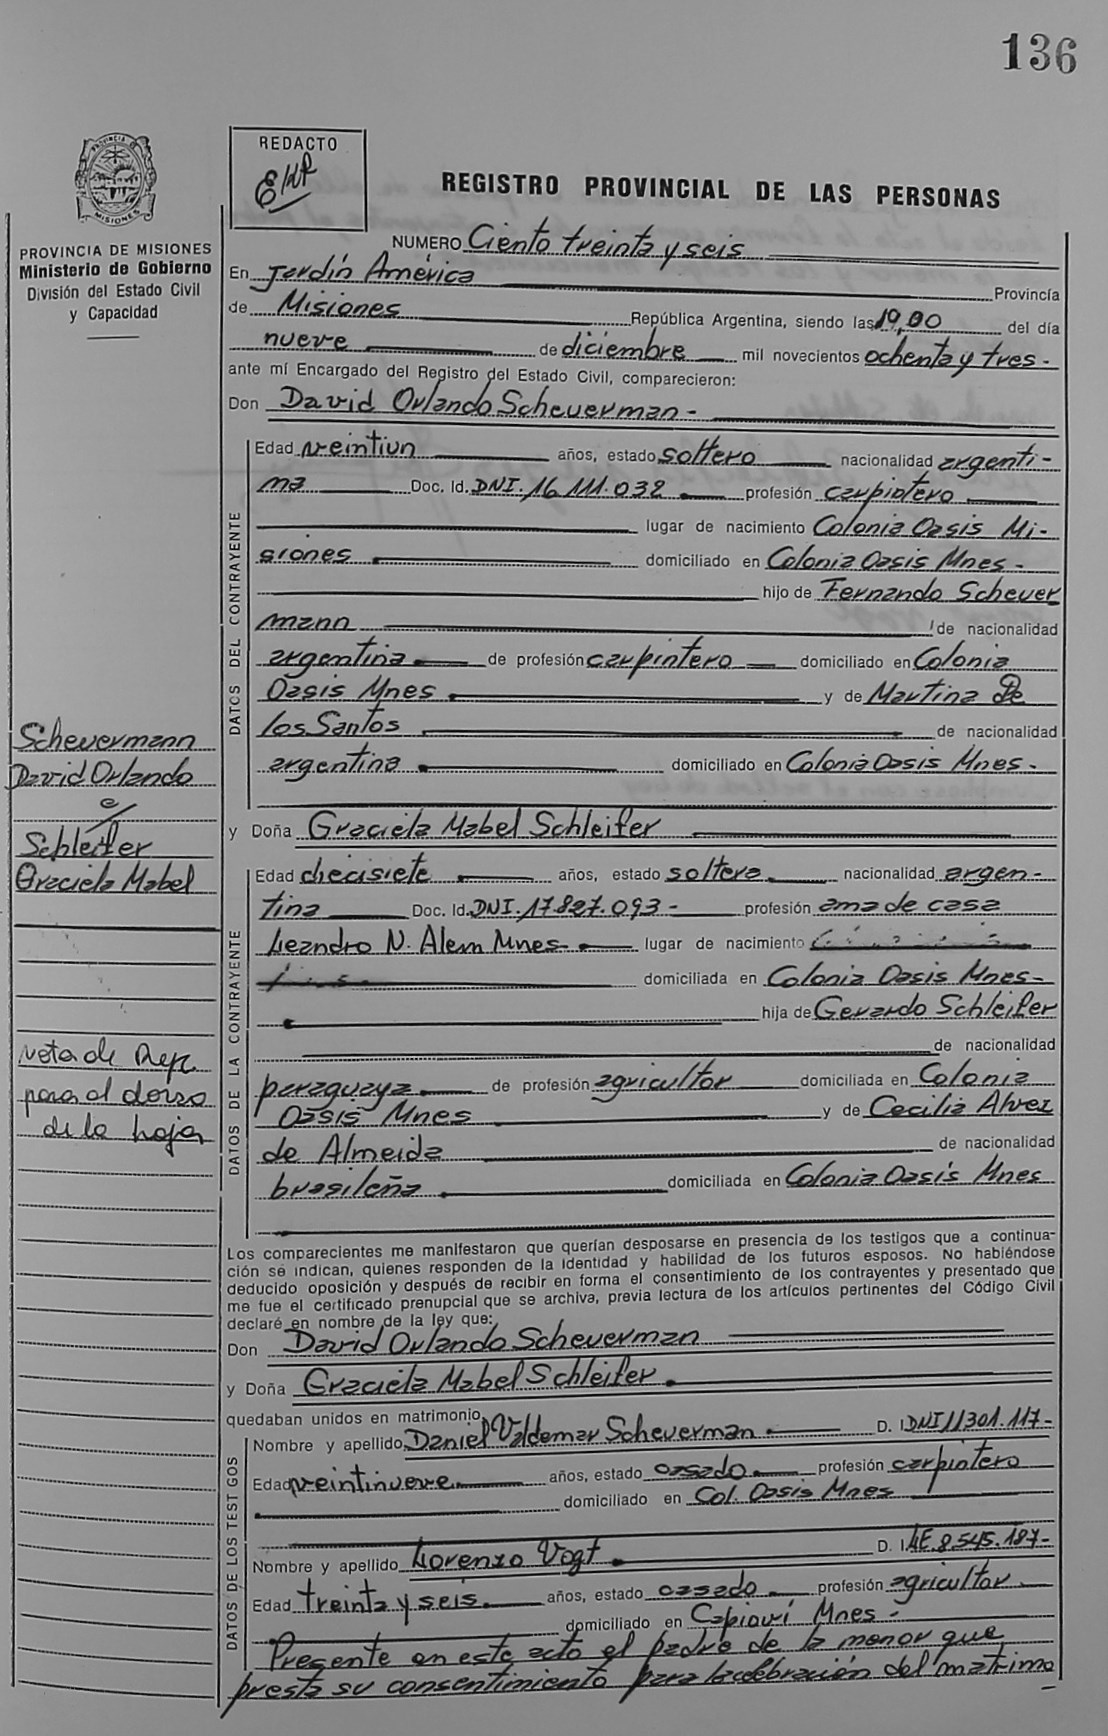 136
PROVINCIA DE
MISIONES
REDACTO
REGISTRO PROVINCIAL DE LAS PERSONAS
PROVINCIA DE MISIONES
Ministerio de Gobierno
División del Estado Civil
y Capacidad
NUMERO Ciento treinta y seis
En Jardín América Provincia
de Misiones República Argentina, siendo las 19,00 del día
nueve de diciembre mil novecientos ochenta y tres -
ante mí Encargado del Registro del Estado Civil, comparecieron:
Don David Orlando Scheuerman -
DATOS DEL CONTRAYENTE
Edad veintiun años, estado soltero nacionalidad argenti-
na Doc. Id. DNI. 16.111.032 profesión carpintero
lugar de nacimiento Colonia Oasis Mi-
siones domiciliado en Colonia Oasis Mnes -
hijo de Fernando Scheuer
mann de nacionalidad
argentina de profesión carpintero domiciliado en Colonia
Oasis Mnes y de Martina De
los Santos de nacionalidad
argentina domiciliado en Colonia Oasis Mnes -
Scheuermann
David Orlando
c/
Schleifer
Graciela Mabel
y Doña Graciela Mabel Schleifer
DATOS DE LA CONTRAYENTE
Edad diecisiete años, estado soltera nacionalidad argen-
tina Doc. Id. DNI. 17.827.093 - profesión ama de casa
Leandro N. Alem Mnes lugar de nacimiento
domiciliada en Colonia Oasis Mnes -
hija de Gerardo Schleifer
de nacionalidad
paraguaya de profesión agricultor domiciliada en Colonia
Oasis Mnes y de Cecilia Alvez
de Almeida de nacionalidad
brasileña domiciliada en Colonia Oasis Mnes
nota de
para al dorso
de la hoja
Los comparecientes me manifestaron que querían desposarse en presencia de los testigos que a continua-
ción se indican, quienes responden de la identidad y habilidad de los futuros esposos. No habiéndose
deducido oposición y después de recibir en forma el consentimiento de los contrayentes y presentado que
me fue el certificado prenupcial que se archiva, previa lectura de los artículos pertinentes del Código Civil
declaré en nombre de la ley que:
Don David Orlando Scheuerman
y Doña Graciela Mabel Schleifer
quedaban unidos en matrimonio
DATOS DE LOS TEST GOS
Nombre y apellido Daniel Valdemar Scheuerman D. I. DNI 11301.117 -
Edad veintinueve años, estado casado profesión carpintero
domiciliado en Col. Oasis Mnes
Nombre y apellido Lorenzo Vogt D. I. LE. 8.545.187 -
Edad treinta y seis años, estado casado profesión agricultor
domiciliado en Capioví Mnes -
Presente en este acto el padre de la menor que
presta su consentimiento para la celebración del matrimo